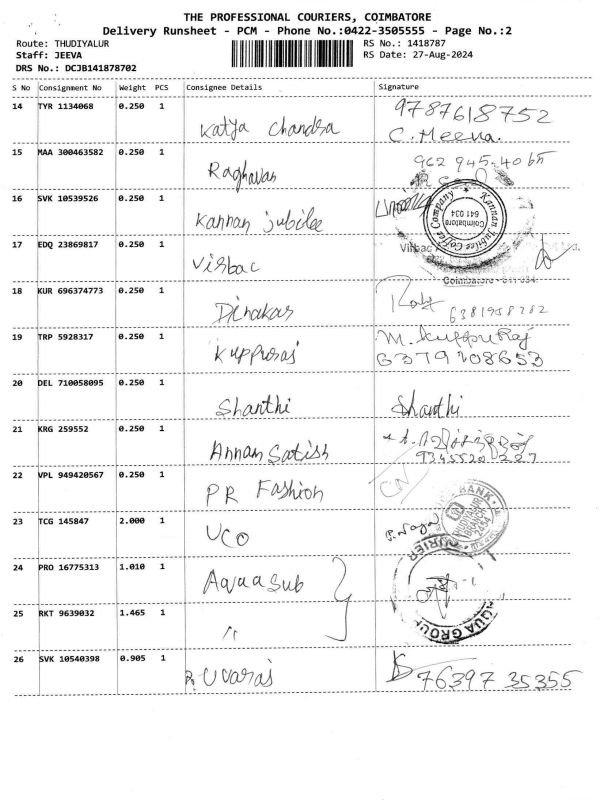 THE PROFESSIONAL COURIERS, COIMBATORE
Delivery Runsheet - PCM - Phone No.:0422-3505555 - Page No.:2
Route: THUDIYALUR RS No.: 1418787
Staff: JEEVA RS Date: 27-Aug-2024
DRS No.: DCJB141878702
S No Consignment No Weight PCS Consignee Details Signature
14 TYR 1134068 0.250 1 Katya Chandra 9787618752
C. Meena.
15 MAA 300463582 0.250 1 Raghavan 962 945 40
16 SVK 10539526 0.250 1 Kannan jubilee Kannan Jubilee Coffee Company Coimbatore 641 034
17 EDQ 23869817 0.250 1 Virbac Virbac Ltd.
Coimbatore - 641 034.
18 KUR 696374773 0.250 1 Dinakar 6381958782
19 TRP 5928317 0.250 1 Kuppuraj M. Kuppuraj
6379208653
20 DEL 710058095 0.250 1 Shanthi Shanthi
21 KRG 259552 0.250 1 Annan Satish 9345520227
22 VPL 949420567 0.250 1 PR Fashion CN
23 TCG 145847 2.000 1 UCO P. Naga BANK THUDIYALUR BRANCH 2454
24 PRO 16775313 1.010 1 Aquasub COURIER
25 RKT 9639032 1.465 1 " AQUA GROUP
26 SVK 10540398 0.905 1 R. Uvaraj 76397 35355